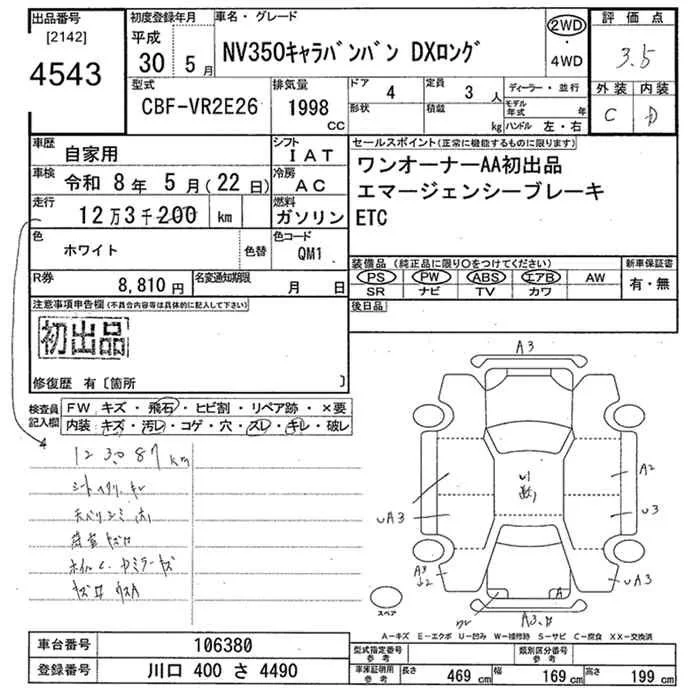 出品番号
[2142]
4543
初度登録年月
平成
30 5 月
車名・グレード
NV350キャラバンバン DXロング
2WD
・
4WD
評価点
3.5
外装 内装
C D
型式
CBF-VR2E26
排気量
1998
CC
ドア
4
定員
3 人
形状
積載
kg
ディーラー・並行
モデル年式 年
ハンドル 左・右
車歴
自家用
シフト
IAT
車検
令和 8年 5月(22日)
冷房
AC
走行
12万3千200 km
燃料
ガソリン
色
ホワイト
色替
色コード
QM1
R券
8,810円
名変通知期限
月 日
セールスポイント(正常に機能するものに限ります)
ワンオーナーAA初出品
エマージェンシーブレーキ
ETC
装備品 (純正品に限り○をつけてください)
新車保証書
PS PW ABS エアB AW
有・無
SR ナビ TV カワ
後日品
注意事項申告欄(不具合内容等は具体的に記入して下さい)
初出品
修復歴 有〔箇所 〕
検査員
記入欄
FW キズ・飛石・ヒビ割・リペア跡・×要
内装 キズ・汚レ・コゲ・穴・スレ・キレ・破レ
123087km
A3
A2
U3
UA3
UA3
A3
スペア
A
A-キズ E-エクボ U-凹み W-補修跡 S-サビ C-腐食 XX-交換済
車台番号 106380
登録番号 川口 400 さ 4490
型式指定番号
参考
類別区分番号
参考
車検証明書
参考
長さ 469 cm 幅 169 cm 高さ 199 cm